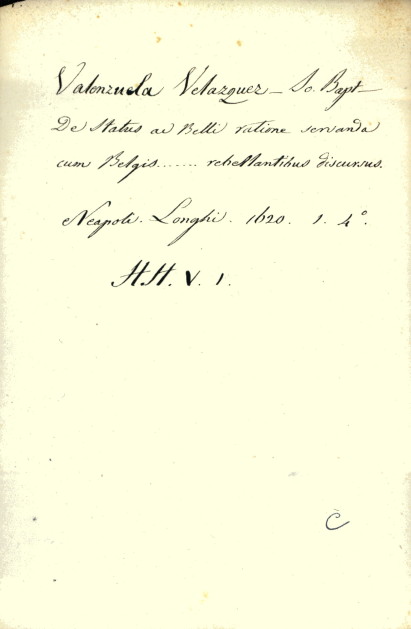 Valenzuela Velazquez – Jo. Bapt
De Status ac Belli ratione servanda
cum Belgis....... rebellantibus discursus.
Neapoli. Longhi. 1620. 1. 4°.
HH. V. 1.
C